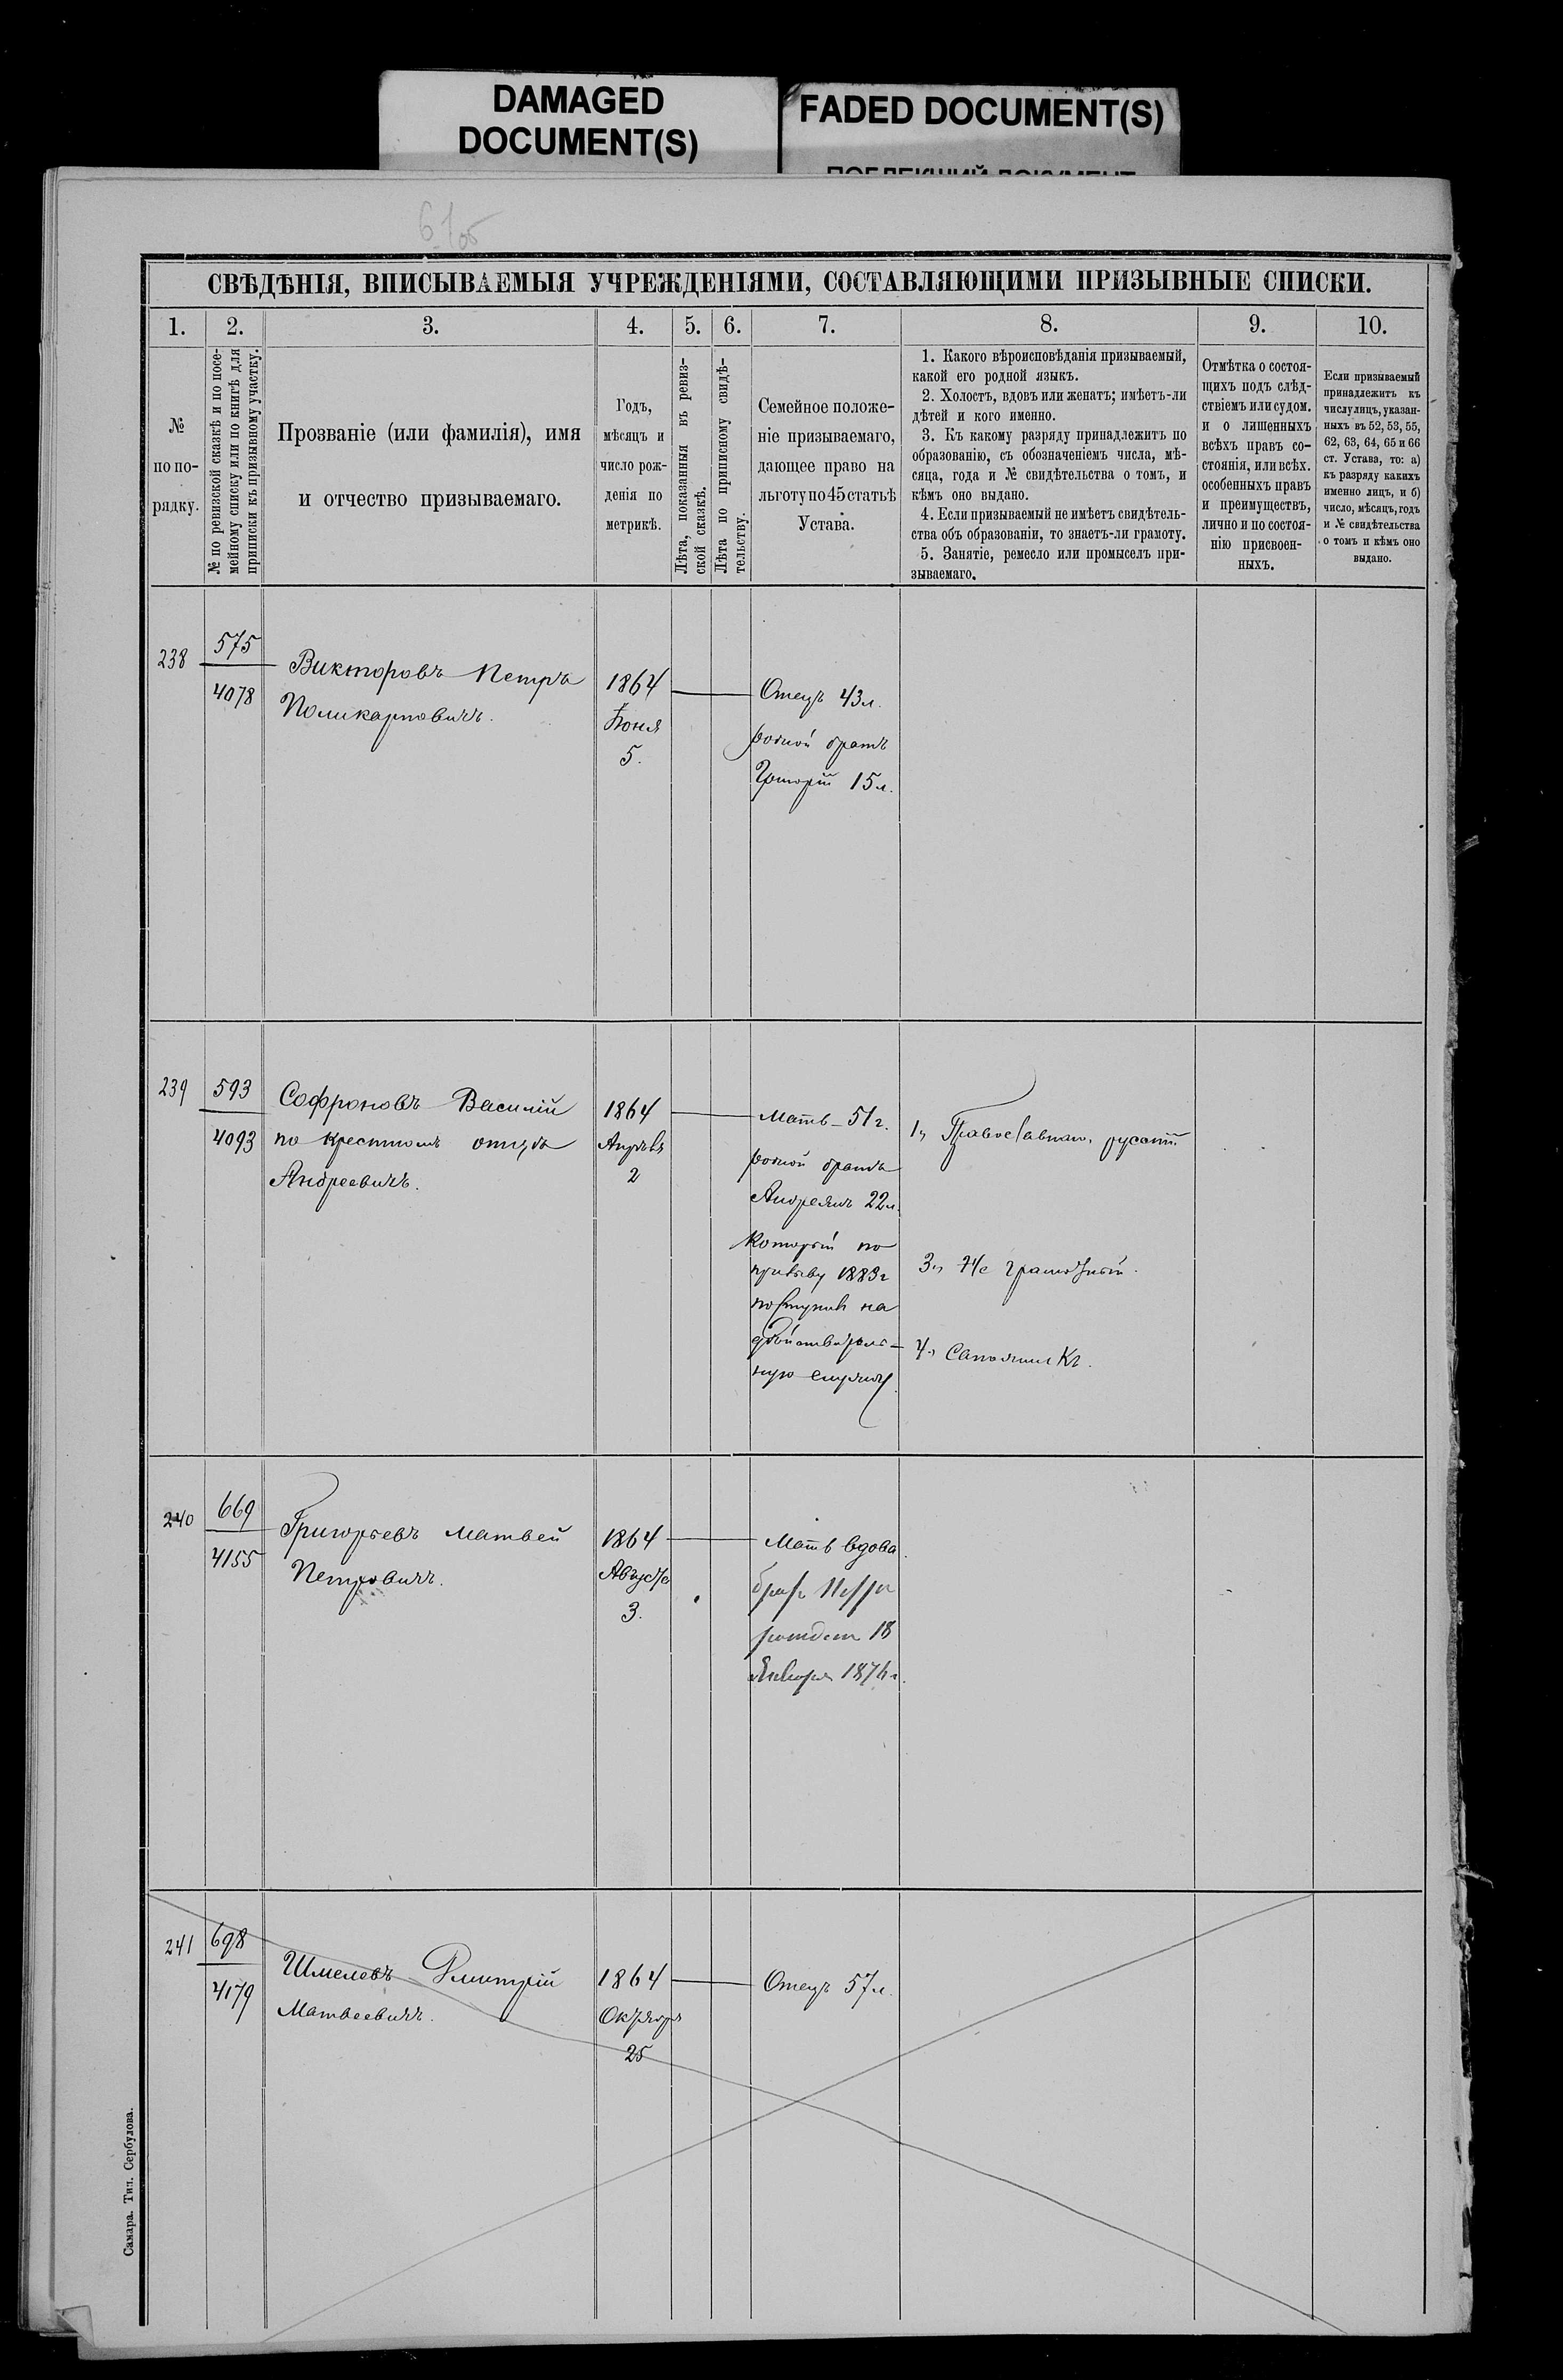 DAMAGED
DOCUMENT(S)
FADED DOCUMENT(S)
ПОБЛЕКШИЙ ДОКУМЕНТ
СВѢДѢНІЯ, ВПИСЫВАЕМЫЯ УЧРЕЖДЕНІЯМИ, СОСТАВЛЯЮЩИМИ ПРИЗЫВНЫЕ СПИСКИ.
1.
2.
3.
4.
5.
6.
7.
8.
9.
10.
№
по по-
рядку.
№ по ревизской сказкѣ и по посе-
мейному списку или по книгѣ для
приписки къ призывному участку.
Прозваніе (или фамилія), имя
и отчество призываемаго.
Годъ,
мѣсяцъ и
число рож-
денія по
метрикѣ.
Лѣта, показанныя въ ревиз-
ской сказкѣ.
Лѣта по приписному свидѣ-
тельству.
Семейное положе-
ніе призываемаго,
дающее право на
льготу по 45 статьѣ
Устава.
1. Какого вѣроисповѣданія призываемый,
какой его родной языкъ.
2. Холостъ, вдовъ или женатъ; имѣетъ-ли
дѣтей и кого именно.
3. Къ какому разряду принадлежитъ по
образованію, съ обозначеніемъ числа, мѣ-
сяца, года и № свидѣтельства о томъ, и
кѣмъ оно выдано.
4. Если призываемый не имѣетъ свидѣтель-
ства объ образованіи, то знаетъ-ли грамоту.
5. Занятіе, ремесло или промыселъ при-
зываемаго.
Отмѣтка о состоя-
щихъ подъ слѣд-
ствіемъ или судом.
и о лишенныхъ
всѣхъ правъ со-
стоянія, или всѣх.
особенныхъ правъ
и преимуществъ,
лично и по состоя-
нію присвоен-
ныхъ.
Если призываемый
принадлежитъ къ
числу лицъ, указан-
ныхъ въ 52, 53, 55,
62, 63, 64, 65 и 66
ст. Устава, то: а)
къ разряду какихъ
именно лицъ, и б)
число, мѣсяцъ, годъ
и № свидѣтельства
о томъ и кѣмъ оно
выдано.
238
575
4078
Викторовъ Петръ
Поликарповичъ.
1864
Іюня
5.
Отецъ 43 л.
родной братъ
Григорій 15 л.
239
593
4093
Софроновъ Василій
по крестномъ отцѣ
Андреевичъ.
1864
Апрѣля
2
Мать 51 г.
родной братъ
Андреянъ 22 л.
который по
призыву 1883 г
поступилъ на
дѣйствитель-
ную службу
1, Православнаго, русскій
3, Не грамотный.
4,
240
669
4155
Григорьевъ Матвей
Петровичъ.
1864
Августа
3.
Мать вдова
братъ Петръ
18
Января 1876 г.
241
698
4179
Шмелевъ Дмитрій
Матвеевичъ.
1864
Октября
25
Отецъ 57 л.
Самара. Тип. Сербулова.